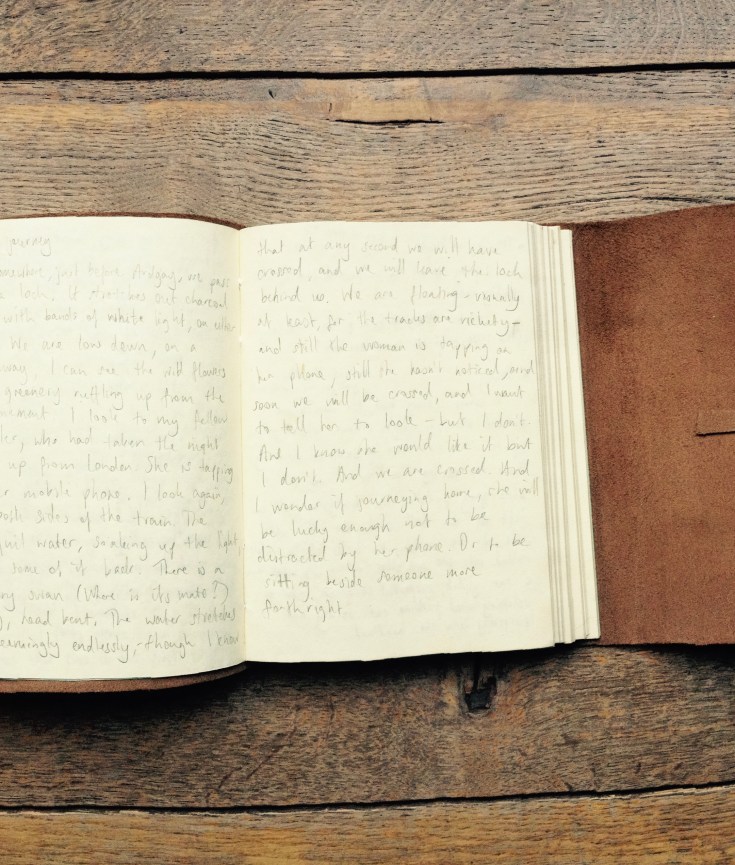 journey
somewhere, just before Ardgay, we pass
a loch. It stretches out charcoal
with bands of white light, on either
We are low down, on a
way. I can see the wild flowers
greenery ruffling up from the
I look to my fellow
who had taken the night
up from London. She is tapping
mobile phone. I look again,
both sides of the train. The
water, soaking up the light,
some of it back. There is a
swan (Where is its mate?)
head bent. The water stretches
seemingly endlessly, though I know
that at any second we will have
crossed, and we will leave the loch
behind us. We are floating - visually
at least, for the tracks are rickety -
and still the woman is tapping on
her phone, still she hasn't noticed, and
soon we will be crossed, and I want
to tell her to look - but I don't.
And I know she would like it but
I don't. And we are crossed. And
I wonder if journeying home, she will
be lucky enough not to be
distracted by her phone. Or to be
sitting beside someone more
forthright.